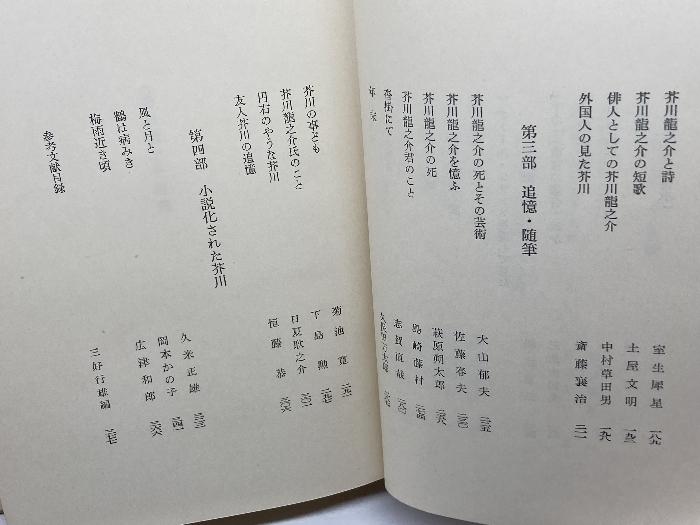 芥川龍之介と詩 室生犀星 一八九
芥川龍之介の短歌 土屋文明 一九三
俳人としての芥川龍之介 中村草田男 一九八
外国人の見た芥川 斎藤襄治 二一一
第三部 追憶・随筆
芥川龍之介の死とその芸術 大山郁夫 二三五
芥川龍之介を憶ふ 佐藤春夫
芥川龍之介の死 萩原朔太郎
芥川龍之介君のこと 島崎藤村 二七四
沓掛にて 志賀直哉 二八〇
久保田万太郎 二八七
芥川の事ども 菊池寛 二九一
芥川龍之介氏のこと 下島勲 二九七
円右のやうな芥川 日夏耿之介
友人芥川の追憶 恒藤恭 三〇六
第四部 小説化された芥川
風と月と 久米正雄
鶴は病みき 岡本かの子 三四一
梅雨近き頃 広津和郎 三六六
参考文献目録 三好行雄編 三七七